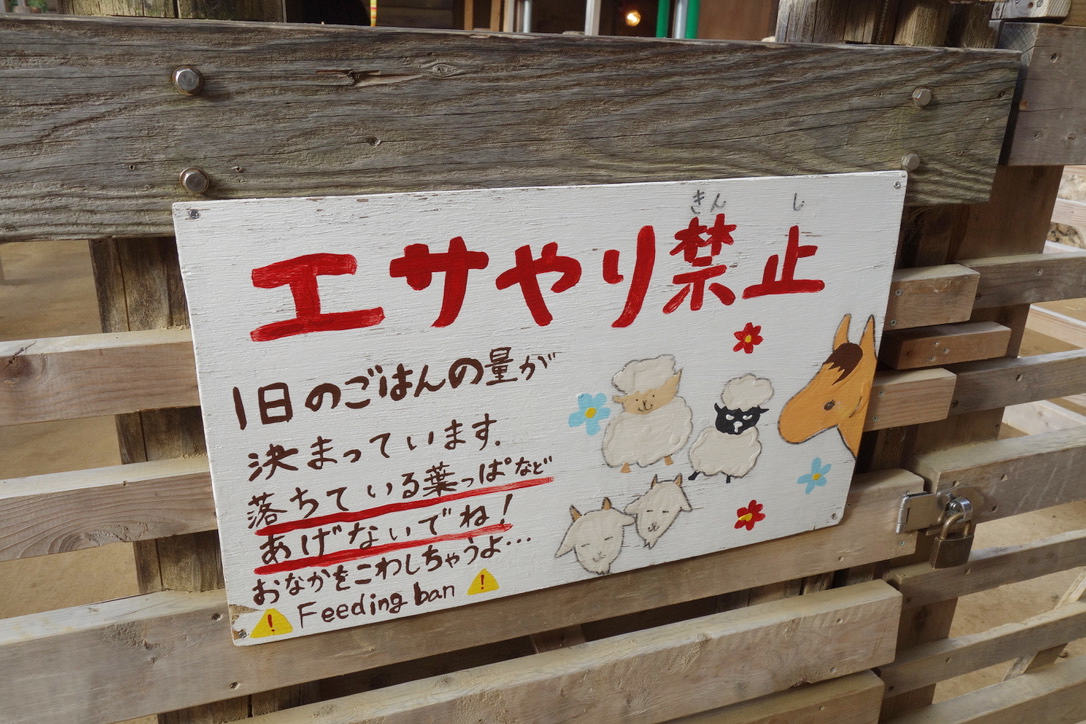 きん し
エサやり禁止
1日のごはんの量が
決まっています.
落ちている葉っぱなど
あげないでね!
おなかをこわしちゃうよ…
! Feeding ban !